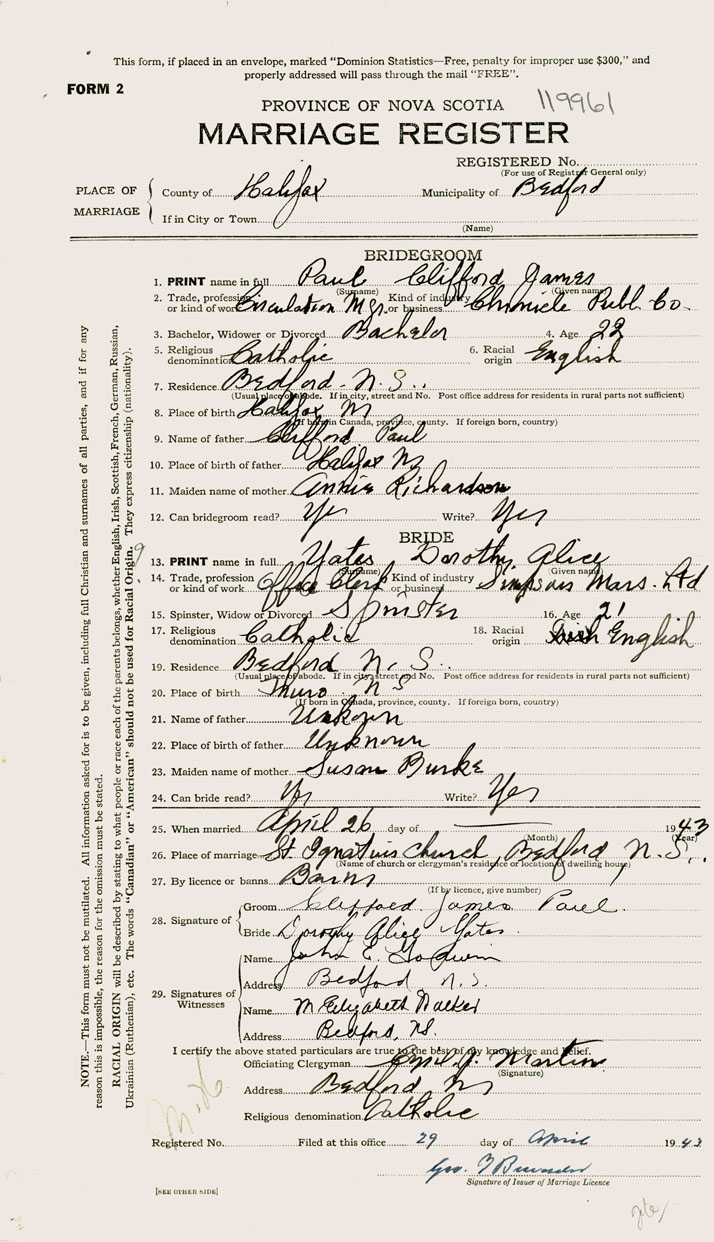 This form, if placed in an envelope, marked "Dominion Statistics—Free, penalty for improper use $300," and
properly addressed will pass through the mail "FREE".
FORM 2
PROVINCE OF NOVA SCOTIA 119961
MARRIAGE REGISTER
REGISTERED No.
(For use of Registrar General only)
PLACE OF MARRIAGE
County of Halifax Municipality of Bedford
If in City or Town
(Name)
BRIDEGROOM
1. PRINT name in full Paul Clifford James
(Surname) (Given name)
2. Trade, profession or kind of work Circulation Mgr. Kind of industry or business Chronicle Publ. Co.
3. Bachelor, Widower or Divorced Bachelor 4. Age 22
5. Religious denomination Catholic 6. Racial origin English
7. Residence Bedford - N.S.
(Usual place of abode. If in city, street and No. Post office address for residents in rural parts not sufficient)
8. Place of birth Halifax NS
(If born in Canada, province, county. If foreign born, country)
9. Name of father Clifford Paul
10. Place of birth of father Halifax NS
11. Maiden name of mother Annie Richardson
12. Can bridegroom read? Yes Write? Yes
BRIDE
13. PRINT name in full Yates Dorothy Alice
(Surname) (Given name)
14. Trade, profession or kind of work Office Clerk Kind of industry or business Simpsons Mars. Ltd
15. Spinster, Widow or Divorced Spinster 16. Age 21
17. Religious denomination Catholic 18. Racial origin English
19. Residence Bedford N.S.
(Usual place of abode. If in city, street and No. Post office address for residents in rural parts not sufficient)
20. Place of birth Truro NS
(If born in Canada, province, county. If foreign born, country)
21. Name of father Unkown
22. Place of birth of father Unknown
23. Maiden name of mother Susan Burke
24. Can bride read? Yes Write? Yes
25. When married April 26 day of 1943
(Month) (Year)
26. Place of marriage St. Ignatius Church, Bedford, N.S.
(Name of church or clergyman's residence or location of dwelling house)
27. By licence or banns Banns
(If by licence, give number)
28. Signature of
Groom Clifford James Paul.
Bride Dorothy Alice Yates
29. Signatures of Witnesses
Name John E. Goodwin
Address Bedford N.S.
Name M Elizabeth Walker
Address Bedford, NS.
I certify the above stated particulars are true to the best of my knowledge and belief.
Officiating Clergyman Martin
(Signature)
Address Bedford NS
Religious denomination Catholic
Registered No. Filed at this office 29 day of April 1943
Geo.
Signature of Issuer of Marriage Licence
[SEE OTHER SIDE]
NOTE.—This form must not be mutilated. All information asked for is to be given, including full Christian and surnames of all parties, and if for any
reason this is impossible, the reason for the omission must be stated.
RACIAL ORIGIN will be described by stating to what people or race each of the parents belongs, whether English, Irish, Scottish, French, German, Russian,
Ukrainian (Ruthenian), etc. The words "Canadian" or "American" should not be used for Racial Origin. They express citizenship (nationality).